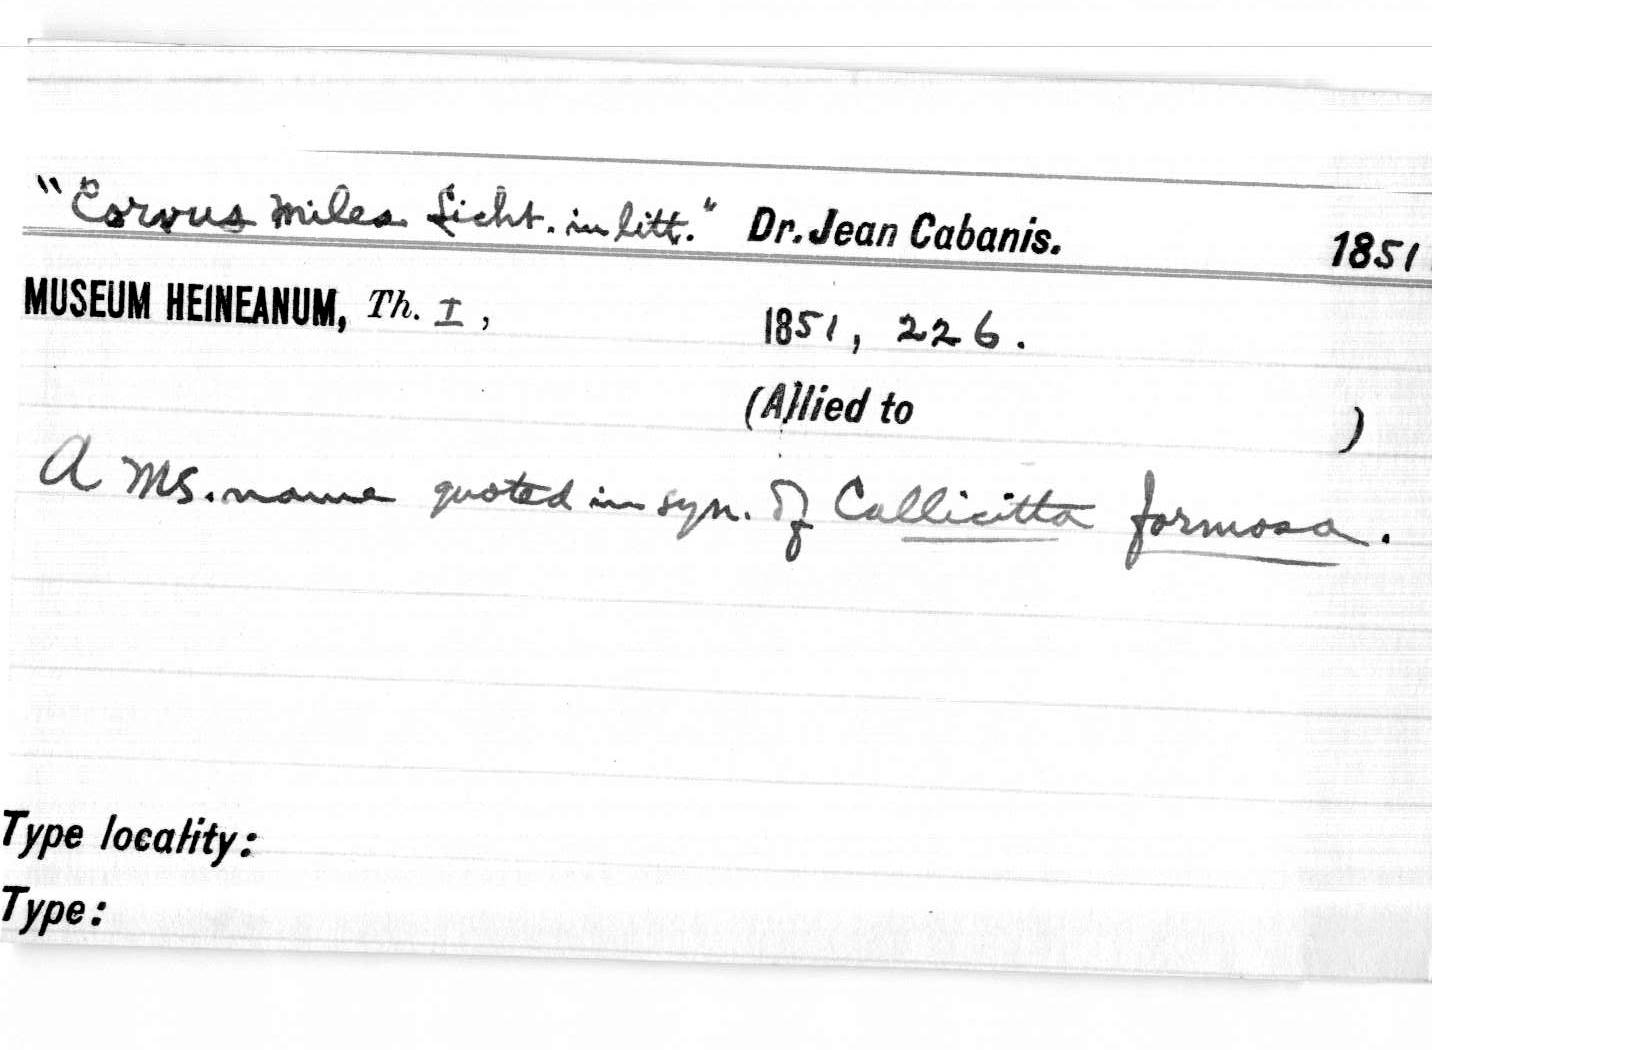 "Corvus miles Licht. in litt." Dr. Jean Cabanis. 1851
MUSEUM HEINEANUM, Th. I, 1851, 226.
(Allied to )
A MS. name quoted in syn. of Callicitta formosa.
Type locality:
Type: